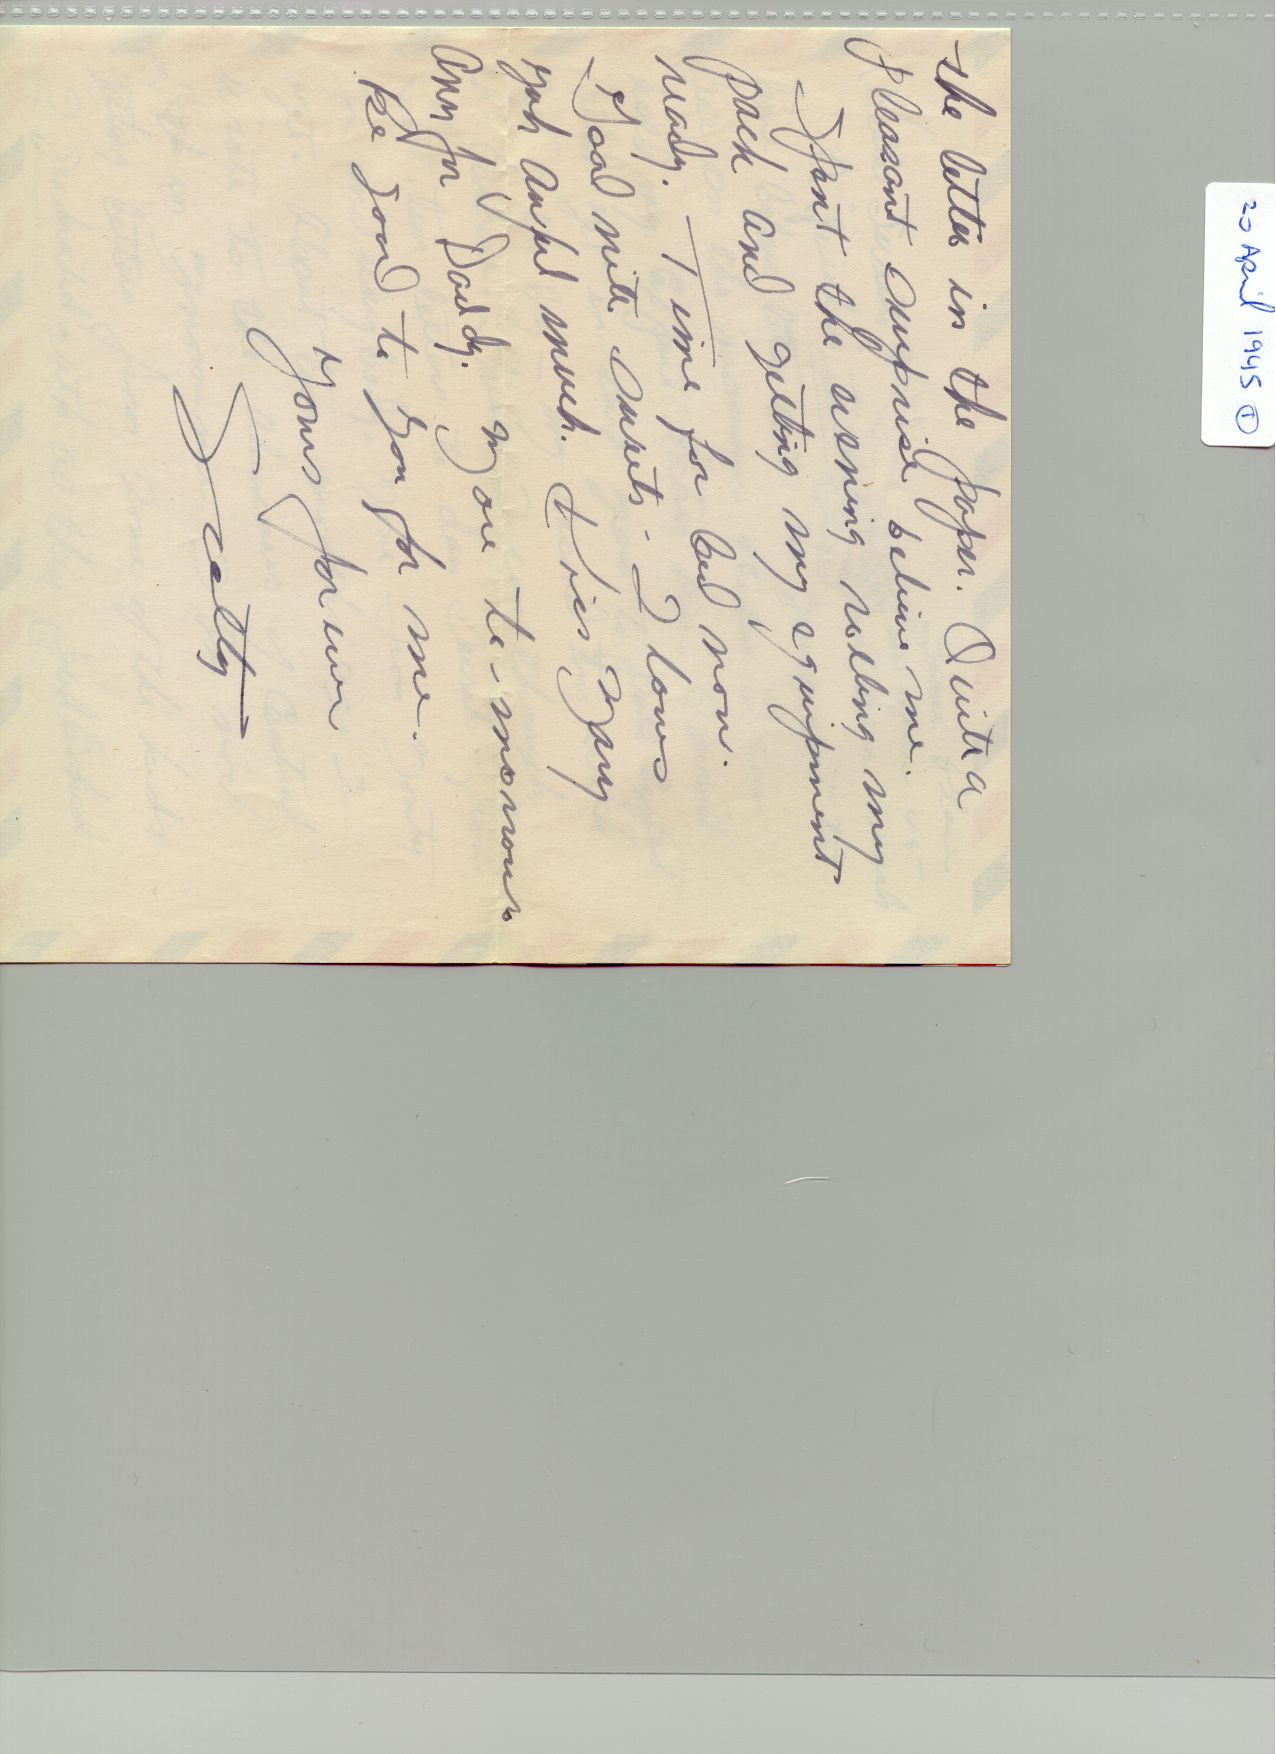 20 April 1945 ①
the letter in the paper. Quite a
pleasant surprise believe me.
Spent the evening rolling my
pack and getting my equipment
ready. Time for bed now.
Good nite sweets - I loves
yah awful much. Kiss Mary
Ann for Daddy. More to-morrow
Be good to you for me.
Yours forever
Scotty